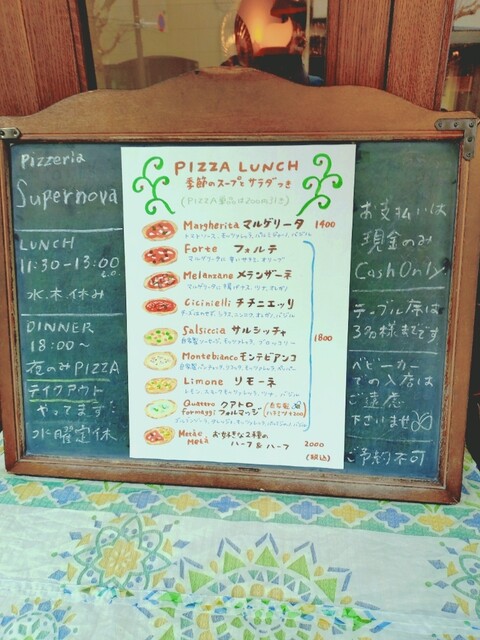 Pizzeria
Supernova
LUNCH
11:30-13:00
L.O.
水.木.休み
DINNER
18:00〜
夜のみPIZZA
テイクアウト
やってます
水曜定休
PIZZA LUNCH
季節のスープとサラダつき
(PIZZA単品は200円引き)
Margherita マルゲリータ 1400
Forte フォルテ
Melanzane メランザーネ
Cicinielli チチニエッリ
Salsiccia サルシッチャ
1800
Montebianco モンテビアンコ
Limone リモーネ
Quattro クアトロ
Formaggi フォルマッジ
Mezzo お好きな2種の
Metà ハーフ&ハーフ 2000
(税込)
お支払いは
現金のみ
Cash Only
テーブル席は
3名様まです
ベビーカー
での入店は
ご遠慮
下さいませ
ご予約不可